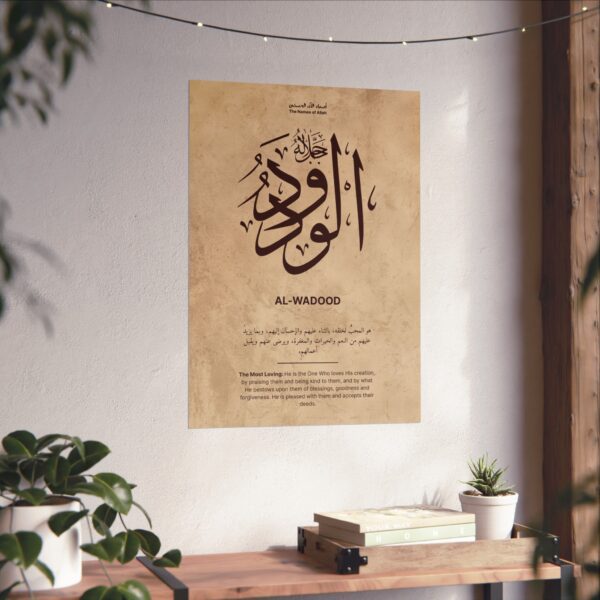 أسماء الله الحسنى
The Names of Allah
الودود
AL-WADOOD
هو المحبُّ لخلقه، بالثناء عليهم والإحسان إليهم، وبما يزيد
عليهم من النعم والخيرات والمغفرة، ويرضى عنهم ويقبل
أعمالهم،
The Most Loving: He is the One Who loves His creation,
by praising them and being kind to them, and by what
He bestows upon them of blessings, goodness and
forgiveness. He is pleased with them and accepts their
deeds.
HOME